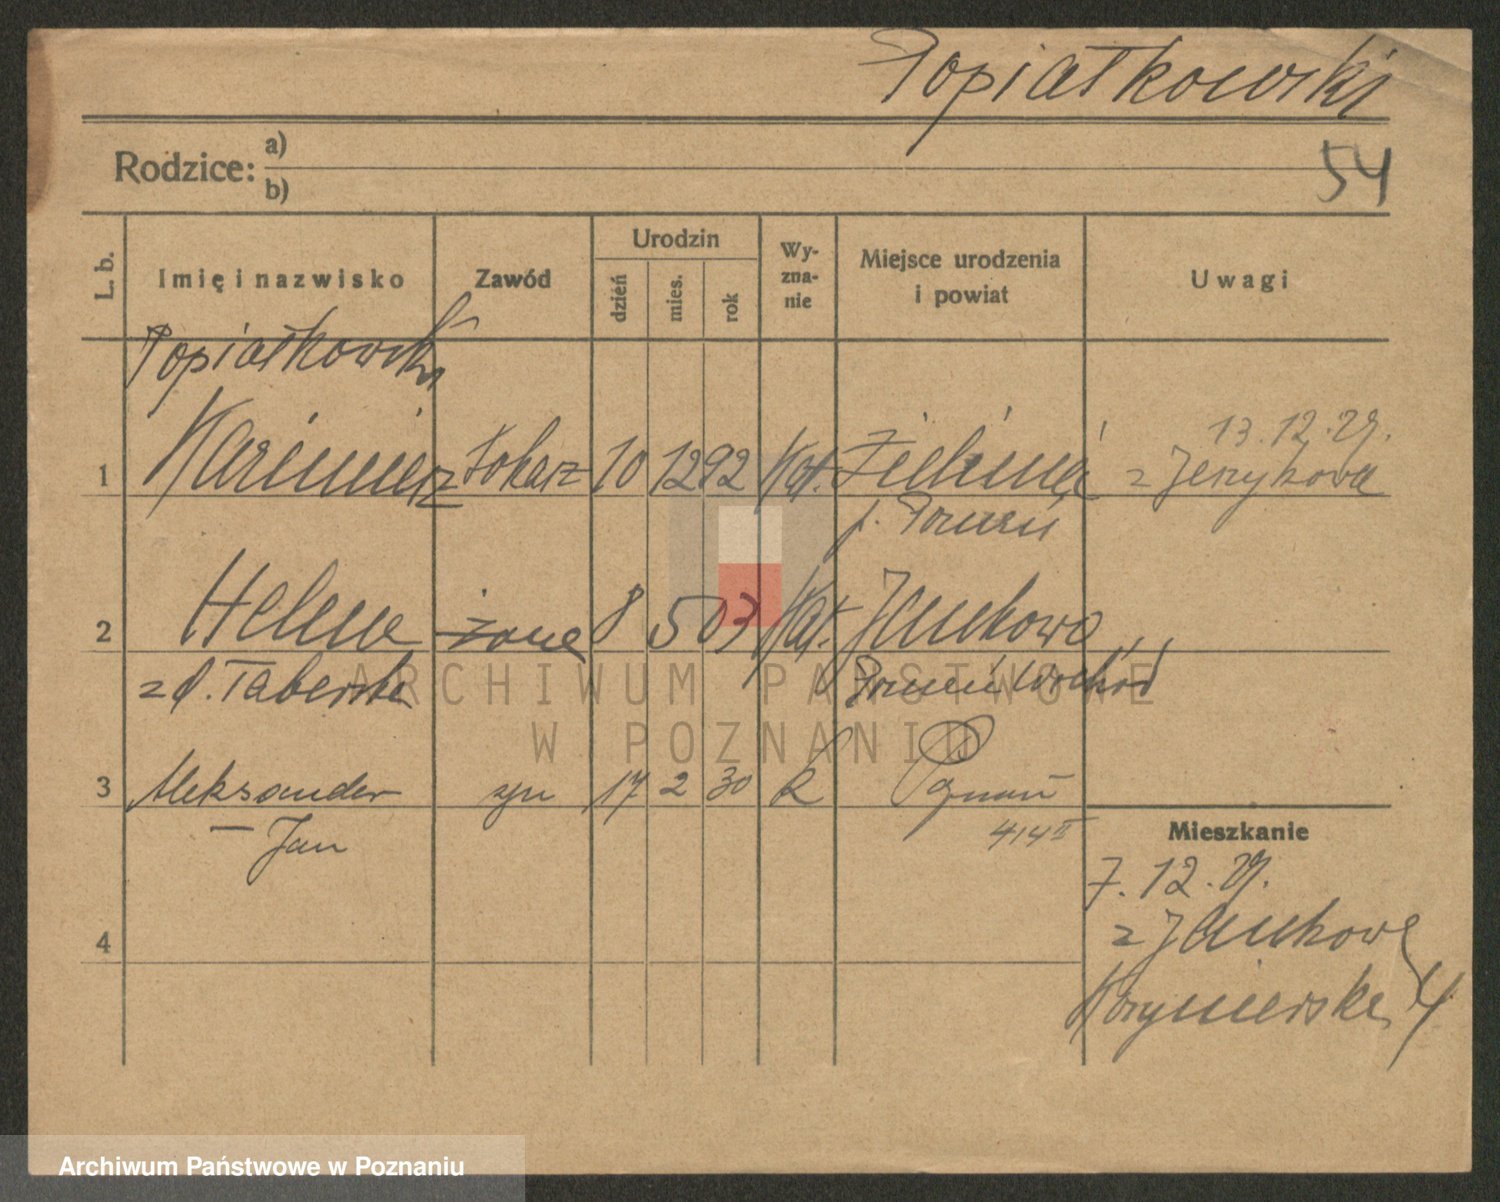 Popiałkowski
Rodzice: a)
b)
54
L. b.
Imię i nazwisko
Zawód
Urodzin
dzień
mies.
rok
Wy-
zna-
nie
Miejsce urodzenia
i powiat
Uwagi
Popiałkowski
1 Kazimierz tokarz 10 12 92 Kat. Zieliniec
p. Poznań
13.12.29.
z Jerzykowa
2 Helena żona 8 5 03 Kat. Jankowo
z d. Taberska Poznań Wschód
3 Aleksander syn 17 2 30 k Poznań
Jan 414 II
4
Mieszkanie
7.12.29.
z Jankowa
4
ARCHIWUM PAŃSTWOWE
W POZNANIU
Archiwum Państwowe w Poznaniu